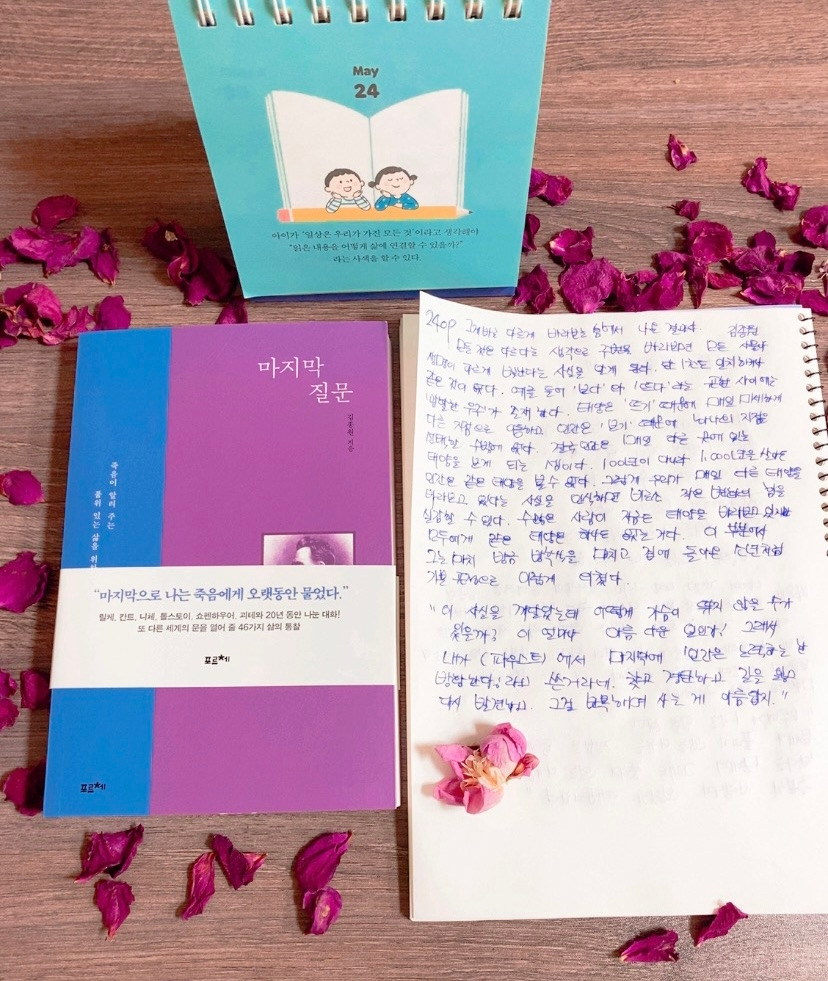 May
24
아이가 '일상은 우리가 가진 모든 것'이라고 생각해야
"읽은 내용을 어떻게 삶에 연결할 수 있을까?"
라는 사색을 할 수 있다.
마지막
질문
김종원 지음
죽음이 알려 주는
품위 있는 삶을 위한
"마지막으로 나는 죽음에게 오랫동안 물었다."
릴케, 칸트, 니체, 톨스토이, 쇼펜하우어, 괴테와 20년 동안 나눈 대화!
또 다른 세계의 문을 열어 줄 46가지 삶의 통찰
포르체
포르체
240p 그게 바로 다르게 바라보는 힘에서 나온 결과다. 김종원
모든 것은 다르다는 생각으로 주변을 바라보면 모든 사물이
다르게 빛난다는 사실을 알게 된다. 단 1초도 일치하거나
같은 것이 없다. 예를 들어 '보다'와 '뜨다'라는 표현 사이에는
우주가 존재한다. 태양은 '뜨기' 때문에 매일 미세하게
다른 지점으로 이동하고 인간은 '보기' 때문에 하나의 지점을
선택할 수밖에 없다. 결국 인간은 매일 다른 곳에 있는
태양을 보게 되는 셈이다. 100년이 아니라 1,000년을 살아도
인간은 같은 태양을 볼 수 없다. 그렇게 우리가 매일 다른 태양을
바라보고 있다는 사실을 인식하면 비로소 작은 변화의 힘을
실감할 수 있다. 수많은 사람이 지금도 태양을 바라보고 있지만
모두에게 같은 태양은 하나도 없는 거다. 이 부분에서
그는 마치 방금 방학식을 마치고 집에 돌아온 소년처럼
기쁜 표정으로 이렇게 외쳤다.
"이 사실을 깨달았는데 어떻게 가슴이 뛰지 않을 수가
있을까? 이 얼마나 아름다운 일인가! 그래서
내가 《파우스트》에서 마지막에 '인간은 노력하는 한
방황한다!'라고 쓴거라네. 찾고 경탄하고 길을 잃고
다시 발견하고. 그걸 반복하며 사는 게 아름답지."